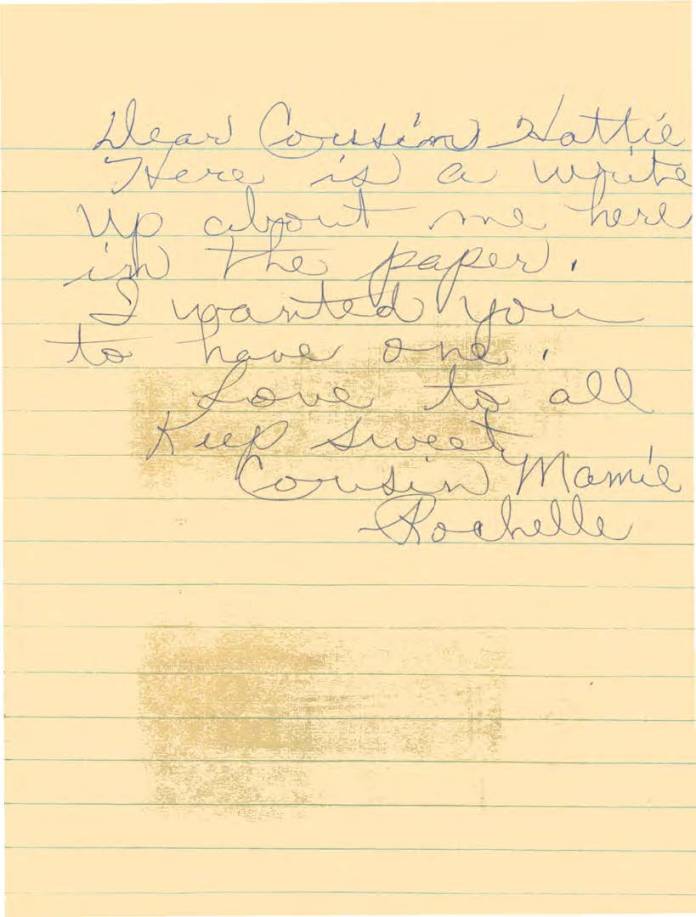 Dear Cousin Hattie
Here is a write
up about me here
in the paper.
I wanted you
to have one.
Love to all
Keep sweet
Cousin Mamie
Rochelle